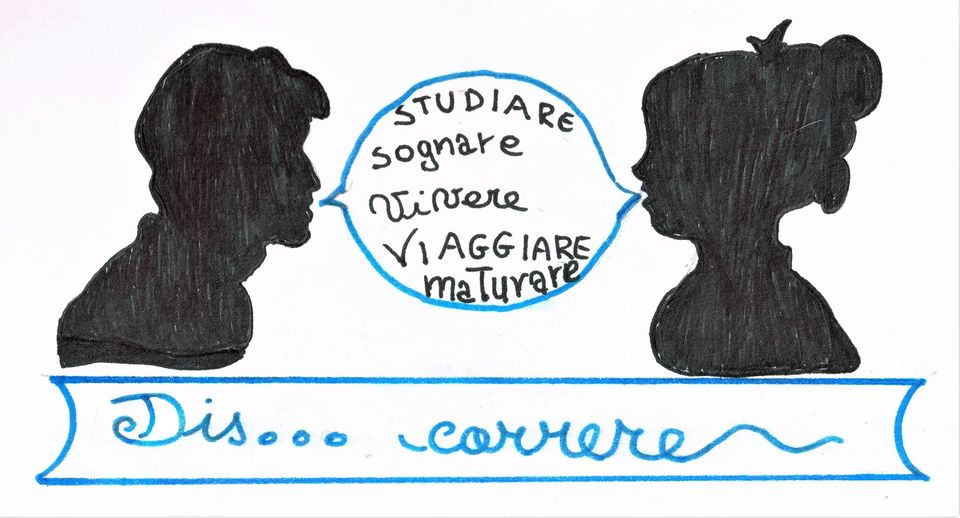 STUDIARE
sognare
vivere
VIAGGIARE
maTurare
Dis... correre